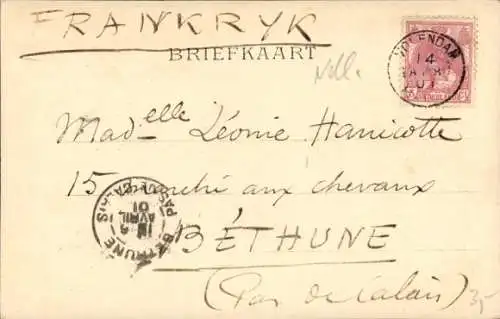 FRANKRYK
BRIEFKAART
VOLENDAM
14
APR
01
Madelle Léonie Hanicotte
15 marché aux chevaux
BÉTHUNE
PAS-DE-CALAIS
AVRIL
01
BÉTHUNE
(Pas de Calais)
35